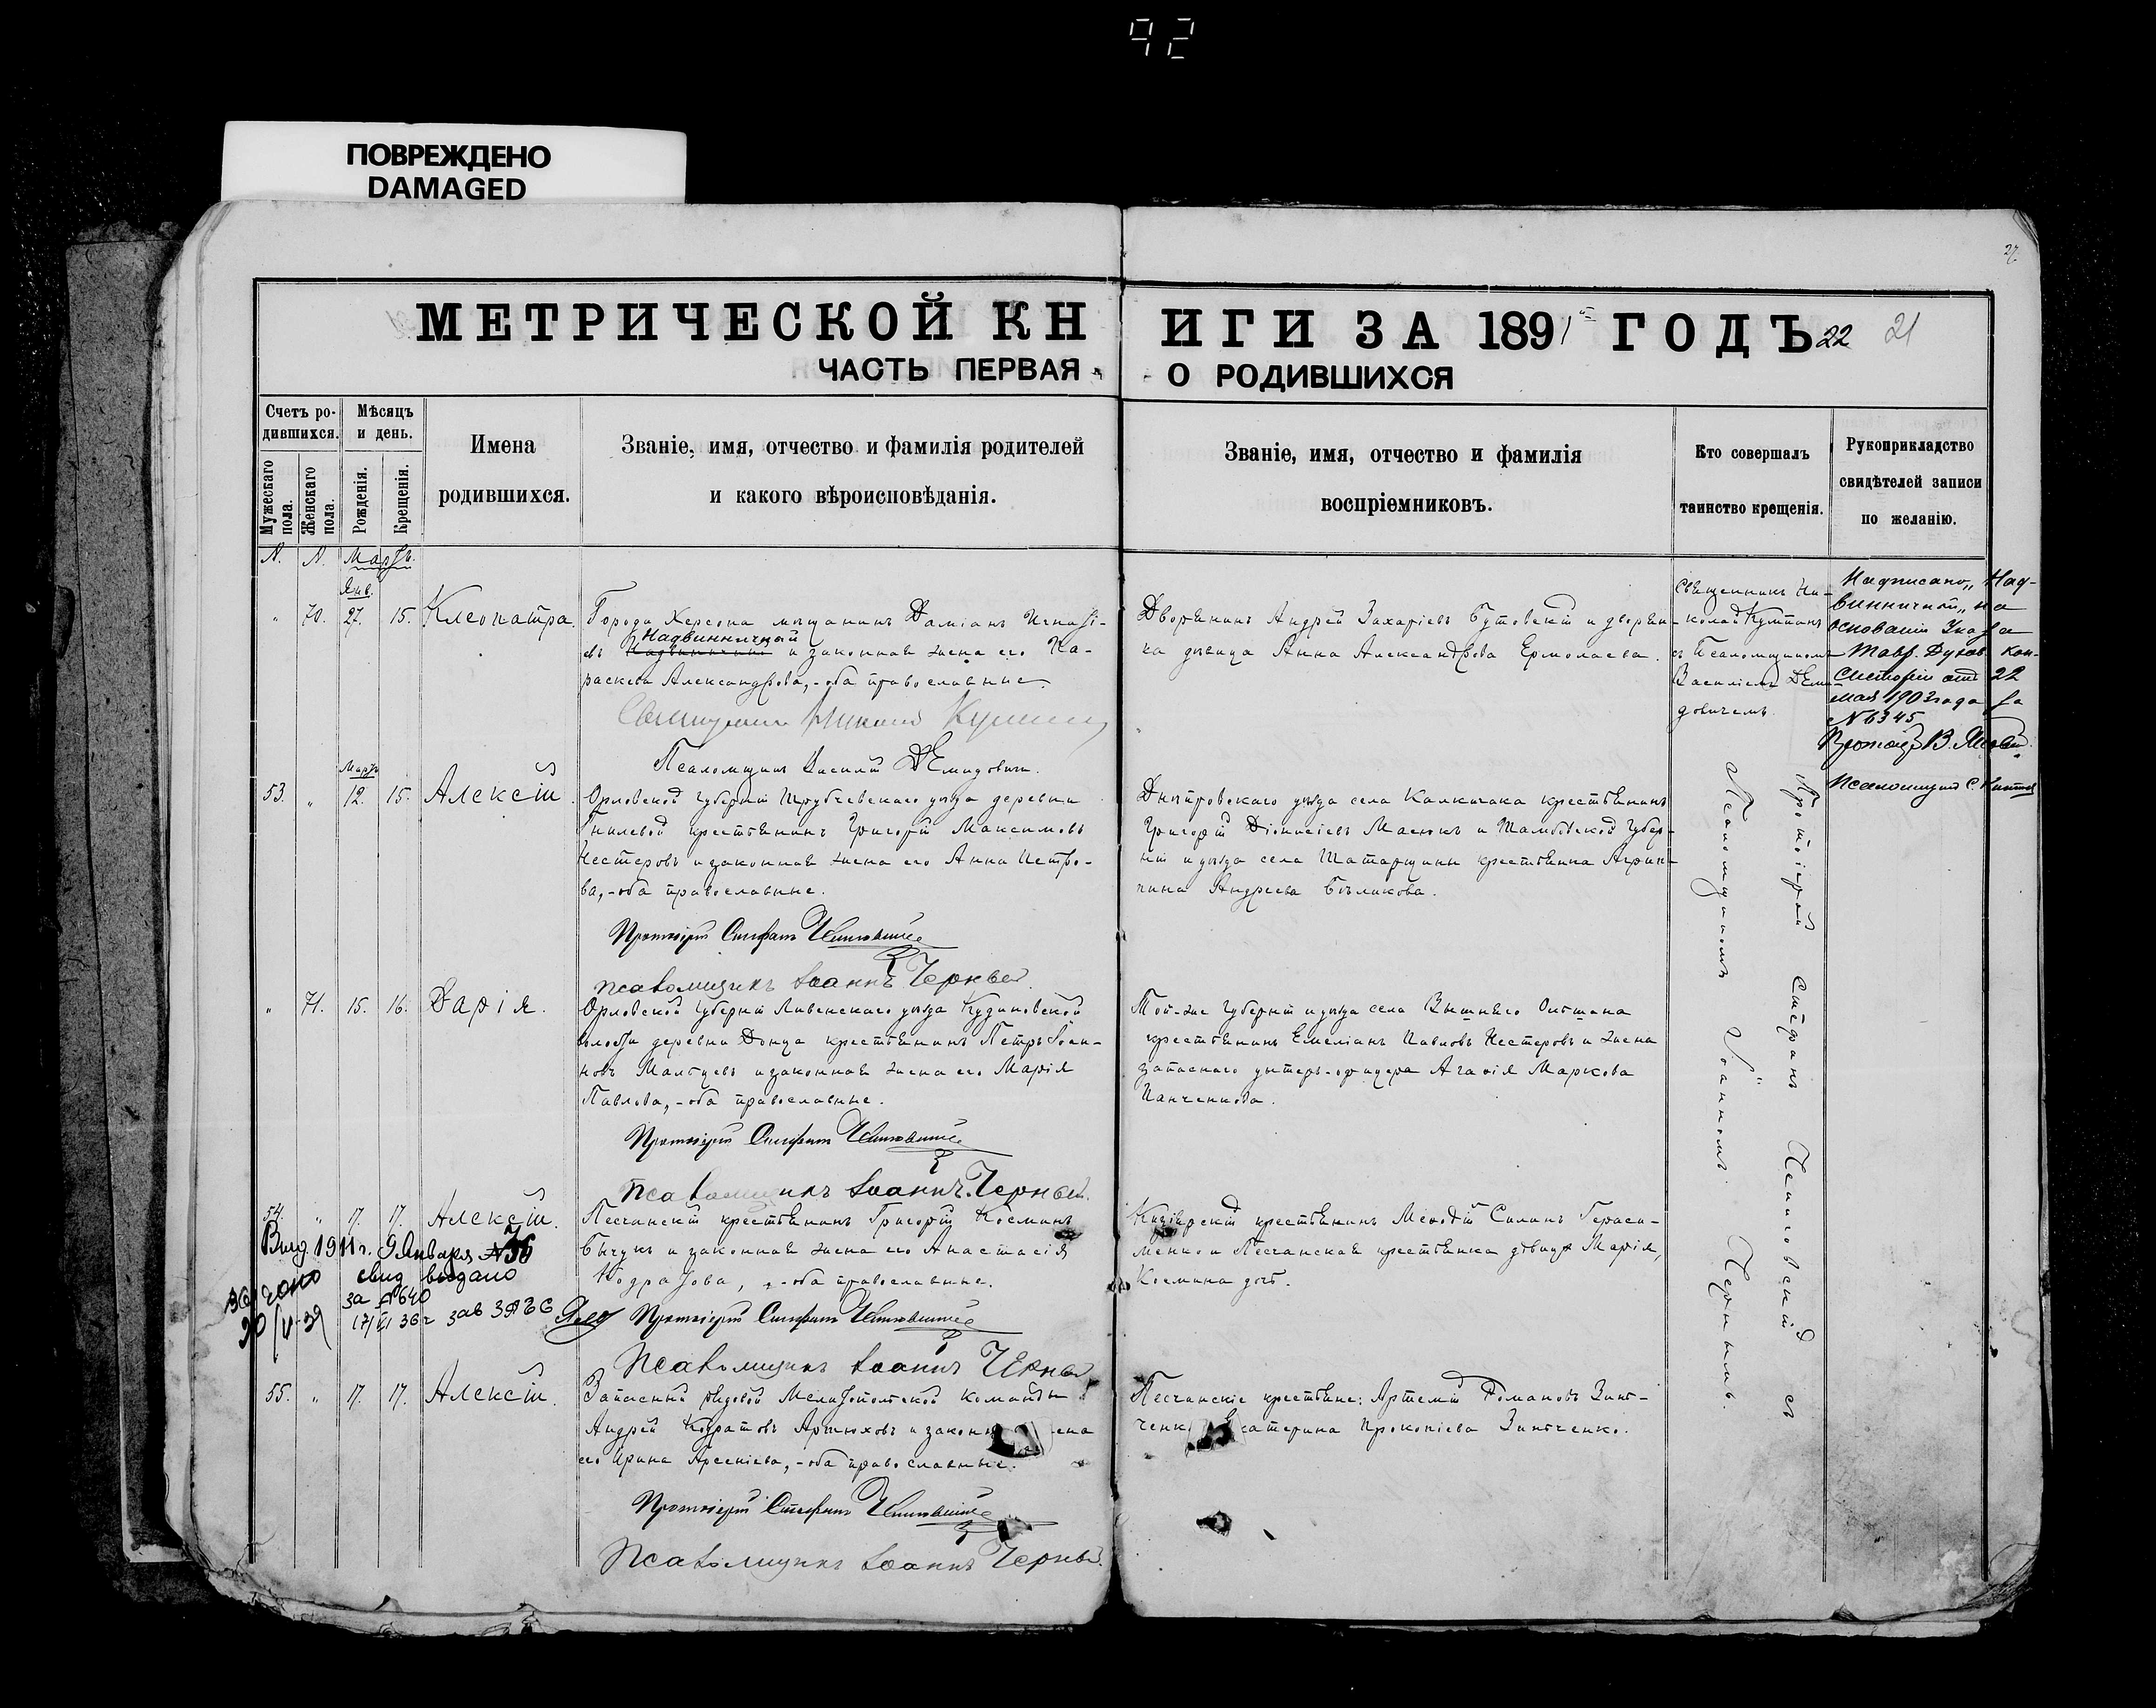 92
ПОВРЕЖДЕНО
DAMAGED
27.
МЕТРИЧЕСКОЙ КНИГИ ЗА 1891 ГОДЪ 22 21
ЧАСТЬ ПЕРВАЯ О РОДИВШИХСЯ
Счетъ ро-
дившихся.
Мужескаго
пола.
Женскаго
пола.
Мѣсяцъ
и день.
Рожденія.
Крещенія.
Имена
родившихся.
Званіе, имя, отчество и фамилія родителей
и какого вѣроисповѣданія.
Званіе, имя, отчество и фамилія
воспріемниковъ.
Кто совершалъ
таинство крещенія.
Рукоприкладство
свидѣтелей записи
по желанію.
N. N. Мартъ.
Янв.
" 70. 27. 15. Клеопатра.
Города Херсона мѣщанинъ Даміанъ Игнаті-
Надвинничный
евъ и законная жена его Па-
раскева Александрова, - оба православные.
Священникъ Николай
Псаломщикъ Василій Демидовичъ.
Дворянинъ Андрей Захаріевъ Бутовскій и дворян-
ка дѣвица Анна Александрова Ермолаева.
Священникъ Ни-
колай
съ Псаломщикомъ
Василіемъ Деми-
довичемъ.
Надписано „Над-
винничный" на
основаніи Указа
Тавр. Духов. Кон-
систоріи отъ 22
мая 1903 года за
N 6345
Протоіер. В.
Псаломщикъ С.
Мартъ
53. " 12. 15. Алексѣй.
Орловской губерніи Трубчевскаго уѣзда деревни
Гнилевой крестьянинъ Григорій Максимовъ
Нестеровъ и законная жена его Анна Петро-
ва, - оба православные.
Протоіерей Стефанъ
Псаломщикъ Іоаннъ Черный.
Днѣпровскаго уѣзда села Калкичака крестьянинъ
Григорій Діонисіевъ Масюкъ и Тамбовской губер-
ніи и уѣзда села Татарщины крестьянка Агрип-
пина Андреева Бѣликова.
Протоіерей Стефанъ съ
Псаломщикомъ Іоанномъ Чернымъ.
" 71. 15. 16. Дарія.
Орловской губерніи Ливенскаго уѣзда Кудиновской
волости деревни Донца крестьянинъ Петръ
новъ Мальцевъ и законная жена его Марія
Павлова, - оба православные.
Протоіерей Стефанъ
Псаломщикъ Іоаннъ Черный.
Той-же губерніи и уѣзда села Вышняго Ольшана
крестьянинъ Емеліанъ Павловъ Нестеровъ и жена
запаснаго унтеръ-офицера Агафія Маркова
Панченкова.
54. " 17. 17. Алексѣй.
Выд. 1911 г. 9 Января N 36
свид выдано
за N 640
зав ЗАГС
Песчанскій крестьянинъ Григорій Косминъ
Бычукъ и законная жена его Анастасія
Кодратова, - оба православные.
Протоіерей Стефанъ
Псаломщикъ Іоаннъ Черный
крестьянинъ Меѳодій Силинъ Гераси-
менко и Песчанская крестьянка дѣвица Марія,
Космина дочь.
55. " 17. 17. Алексѣй.
Запасный рядовой Мелитопольской команды
Андрей Кодратовъ Артюховъ и законн ена
его Ирина Арсеніева, - оба православные.
Протоіерей Стефанъ
Псаломщикъ Іоаннъ Черный.
Песчанскіе крестьяне: Артемій Романовъ Зинь-
ченк катерина Прокопіева Зинченко.